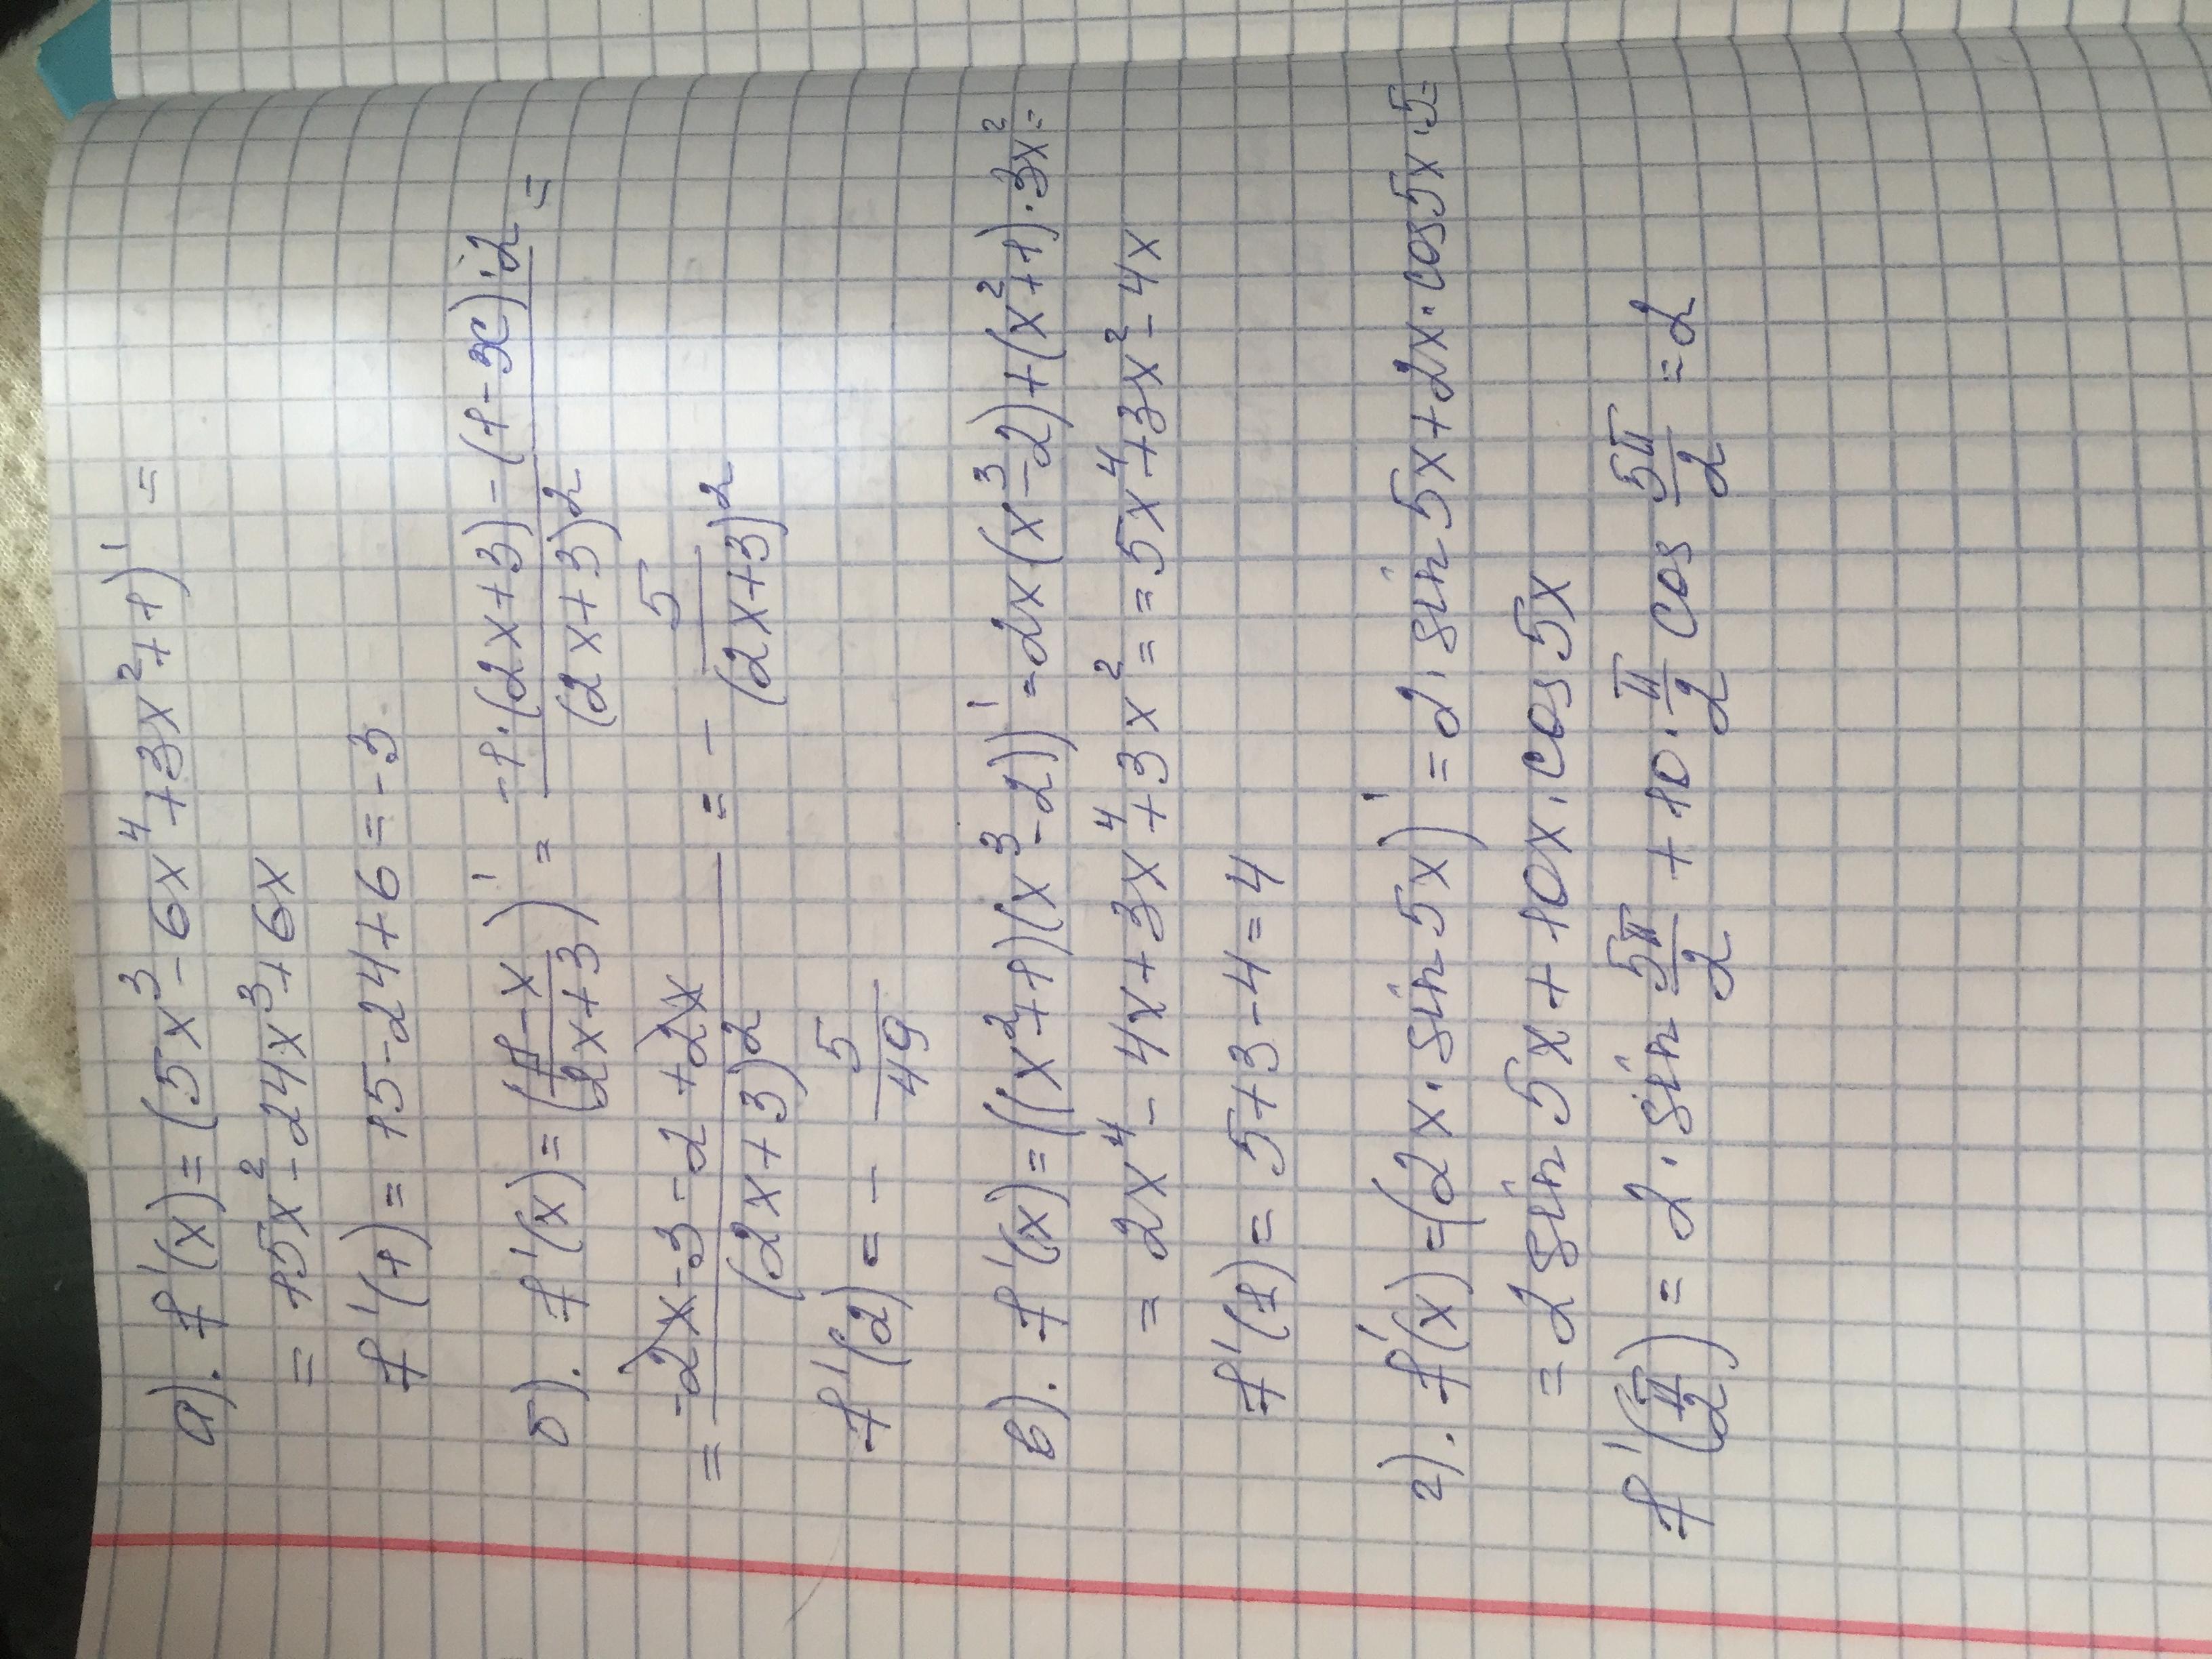 а). f'(x) = (5x³ - 6x⁴ + 3x² + 1)' =
= 15x² - 24x³ + 6x
f'(1) = 15 - 24 + 6 = -3
б). f'(x) = ((1-x)/(2x+3))' = (-1·(2x+3) - (1-x)·2)/(2x+3)² =
= (-2x - 3 - 2 + 2x)/(2x+3)² = - 5/(2x+3)²
f'(2) = - 5/49
в). f'(x) = ((x²+1)(x³-2))' = 2x(x³-2) + (x²+1)·3x² =
= 2x⁴ - 4x + 3x⁴ + 3x² = = 5x⁴ + 3x² - 4x
f'(1) = 5 + 3 - 4 = 4
г). f'(x) = (2x·sin 5x)' = 2·sin 5x + 2x·cos 5x·5 =
= 2 sin 5x + 10x·cos 5x
f'(π/2) = 2·sin 5π/2 + 10·π/2 cos 5π/2 = 2